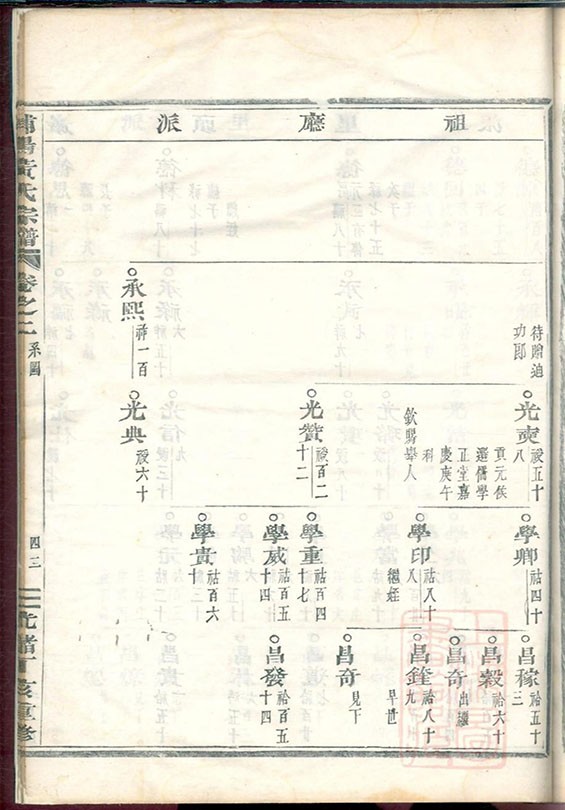 祖廳派
待贈迪功郎
光奭 祾五十八
貢元候
選儒學
正堂嘉
慶庚午
科
欽賜舉人
學卿 祜四十
昌稼 祫五十三
昌穀 祫六十
昌奇 出繼
學印 祜八十八
繼姪
昌鍷 祫八十九
早世
昌奇 見下
光贊 祾百二十二
學重 祜百四十七
學威 祜百五十四
昌發 祫百五十四
學貴 祜百六十
承熙 祥一百
光典 祾六十
黃氏宗譜 卷之二 系圖
四三
光緒丁亥重修